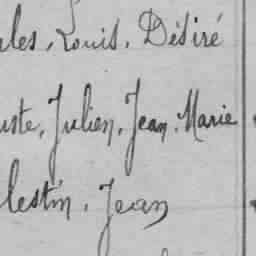 ales, Louis, Désiré
uste, Julien, Jean, Marie
lestin, Jean